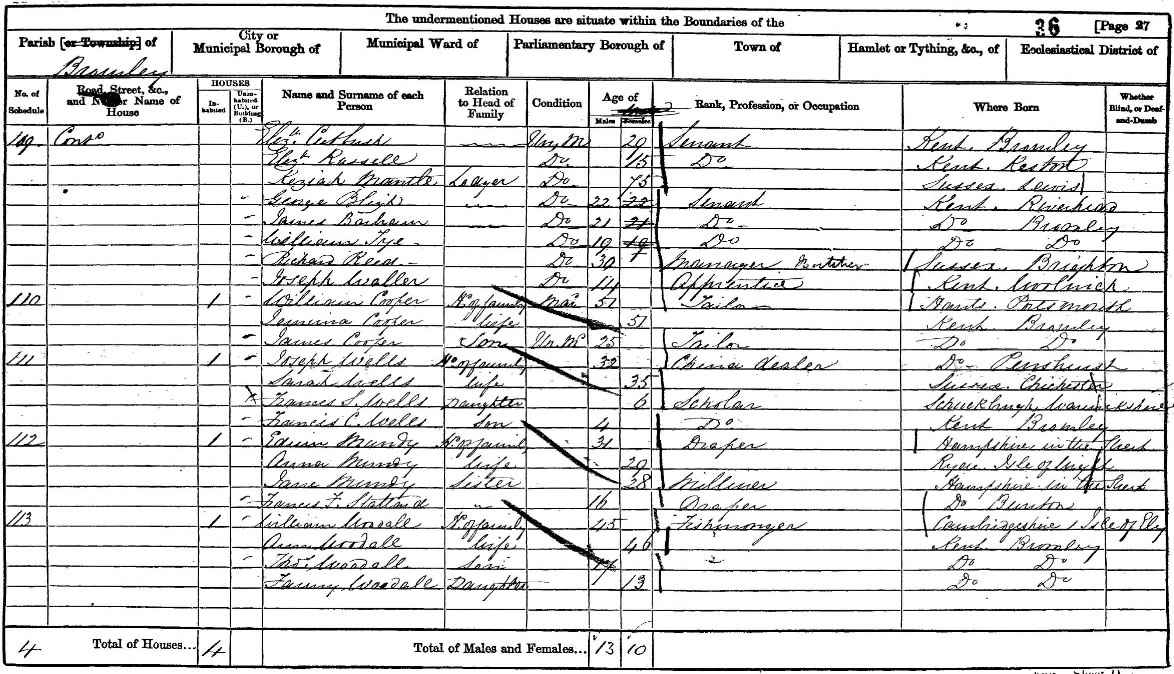 The undermentioned Houses are situate within the Boundaries of the
36 [Page 27
Parish [or Township] of City or Municipal Borough of Municipal Ward of Parliamentary Borough of Town of Hamlet or Tything, &c., of Ecclesiastical District of
Bromley
No. of Schedule Road, Street, &c., and No. or Name of House HOUSES Inhabited Uninhabited (U.), or Building (B.) Name and Surname of each Person Relation to Head of Family Condition Age of Males Females Rank, Profession, or Occupation Where Born Whether Blind, or Deaf-and-Dumb
109 Contd Un.M 29 Servant Kent Bromley
Elizth Russell Do 15 Do Kent Keston
Keziah Mantle Lodger Do 75 Sussex Lewis
George Bligh Do 22 22 Servant Kent Riverhead
James Barham Do 21 21 Do Do Bromley
William Tye Do 19 19 Do Do Do
Richard Reed Do 30 Manager Sussex Brighton
Joseph Waller Do 14 Apprentice Kent Woolwich
110 1 William Cooper Hd of family Mar 51 Tailor Hants Portsmouth
Jemima Cooper Wife 51 Kent Bromley
James Cooper Son Un.M 25 Tailor Do Do
111 1 Joseph Wells Hd of family 32 China dealer Do Penshurst
Sarah Wells Wife 35 Sussex Chichester
Frances S. Wells Daughter 6 Scholar Warwickshire
Francis C. Wells Son 4 Do Kent Bromley
112 1 Edwin Mundy Hd of family 31 Draper Hampshire in the
Anna Mundy Wife 29 Ryde Isle of Wight
Jane Mundy Sister 28 Milliner Hampshire in the
Francis F. 16 Draper Do
113 1 William Woodall Hd of family 45 Fishmonger Cambridgeshire Isle of Ely
Ann Woodall Wife 46 Kent Bromley
Thos Woodall Son Do Do
Fanny Woodall Daughter 13 Do Do
4 Total of Houses... 4 Total of Males and Females... 13 10